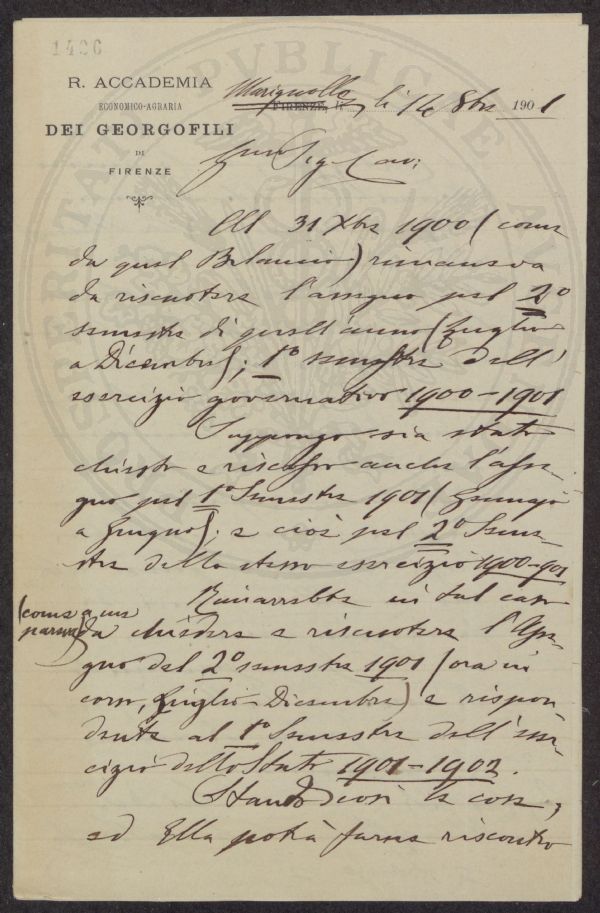 1426
R. ACCADEMIA
ECONOMICO-AGRARIA
DEI GEORGOFILI
DI
FIRENZE
Marignolle, FIRENZE, li 14 8bre 1901
Al 31 Xbre 1900 (come
da quel Bilancio) rimaneva
da riscuotere l'assegno pel 2º
semestre di quell'anno (Luglio
a Dicembre); 1º semestre dell'
esercizio governativo 1900-1901
Suppongo sia stato
chiesto e riscosso anche l'asse-
gno pel 1º Semestre 1901 (Gennajo
a Giugno); e cioè pel 2º Seme-
stre dello stesso esercizio 1900-901
Rimarrebbe in tal caso
(come a me
parrva)
da chiedere e riscuotere l'Asse-
gno del 2º semestre 1901 (ora in
corso, Luglio-Dicembre) e rispon
dente al 1º Semestre dell'eser-
cizio dello Stato 1901-1902.
Stando così le cose,
ed Ella potrà farne riscontro
PVBLICAE